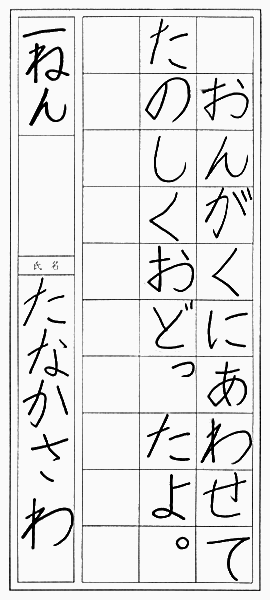 おんがくにあわせて
たのしくおどったよ。
一ねん
氏名
たなかさわ